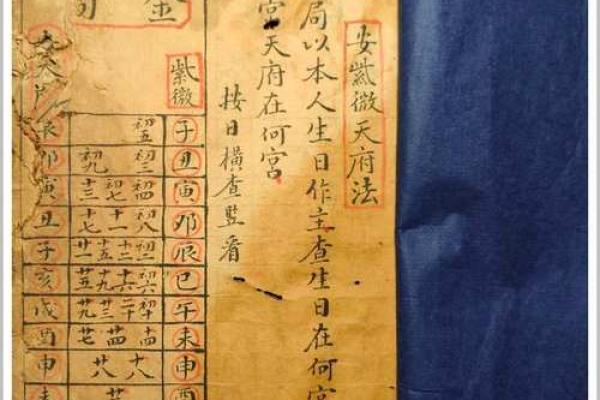 安紫微天府法
局以本人生日作主查生日在何宮
宮天府在何宮
按日橫查監看
金局
紫微 天府
子 初五 辰
丑 初三 初九 卯
寅 初四 初七 十三 寅
卯 初八 十一 十七 丑
辰 初二 十二 十五 廿一 子
巳 初六 十六 十九 廿五 亥
午 初十 二十 廿三 廿九 戌
未 十四 廿四 廿七 酉
申 十八 廿八 申
酉 廿 未